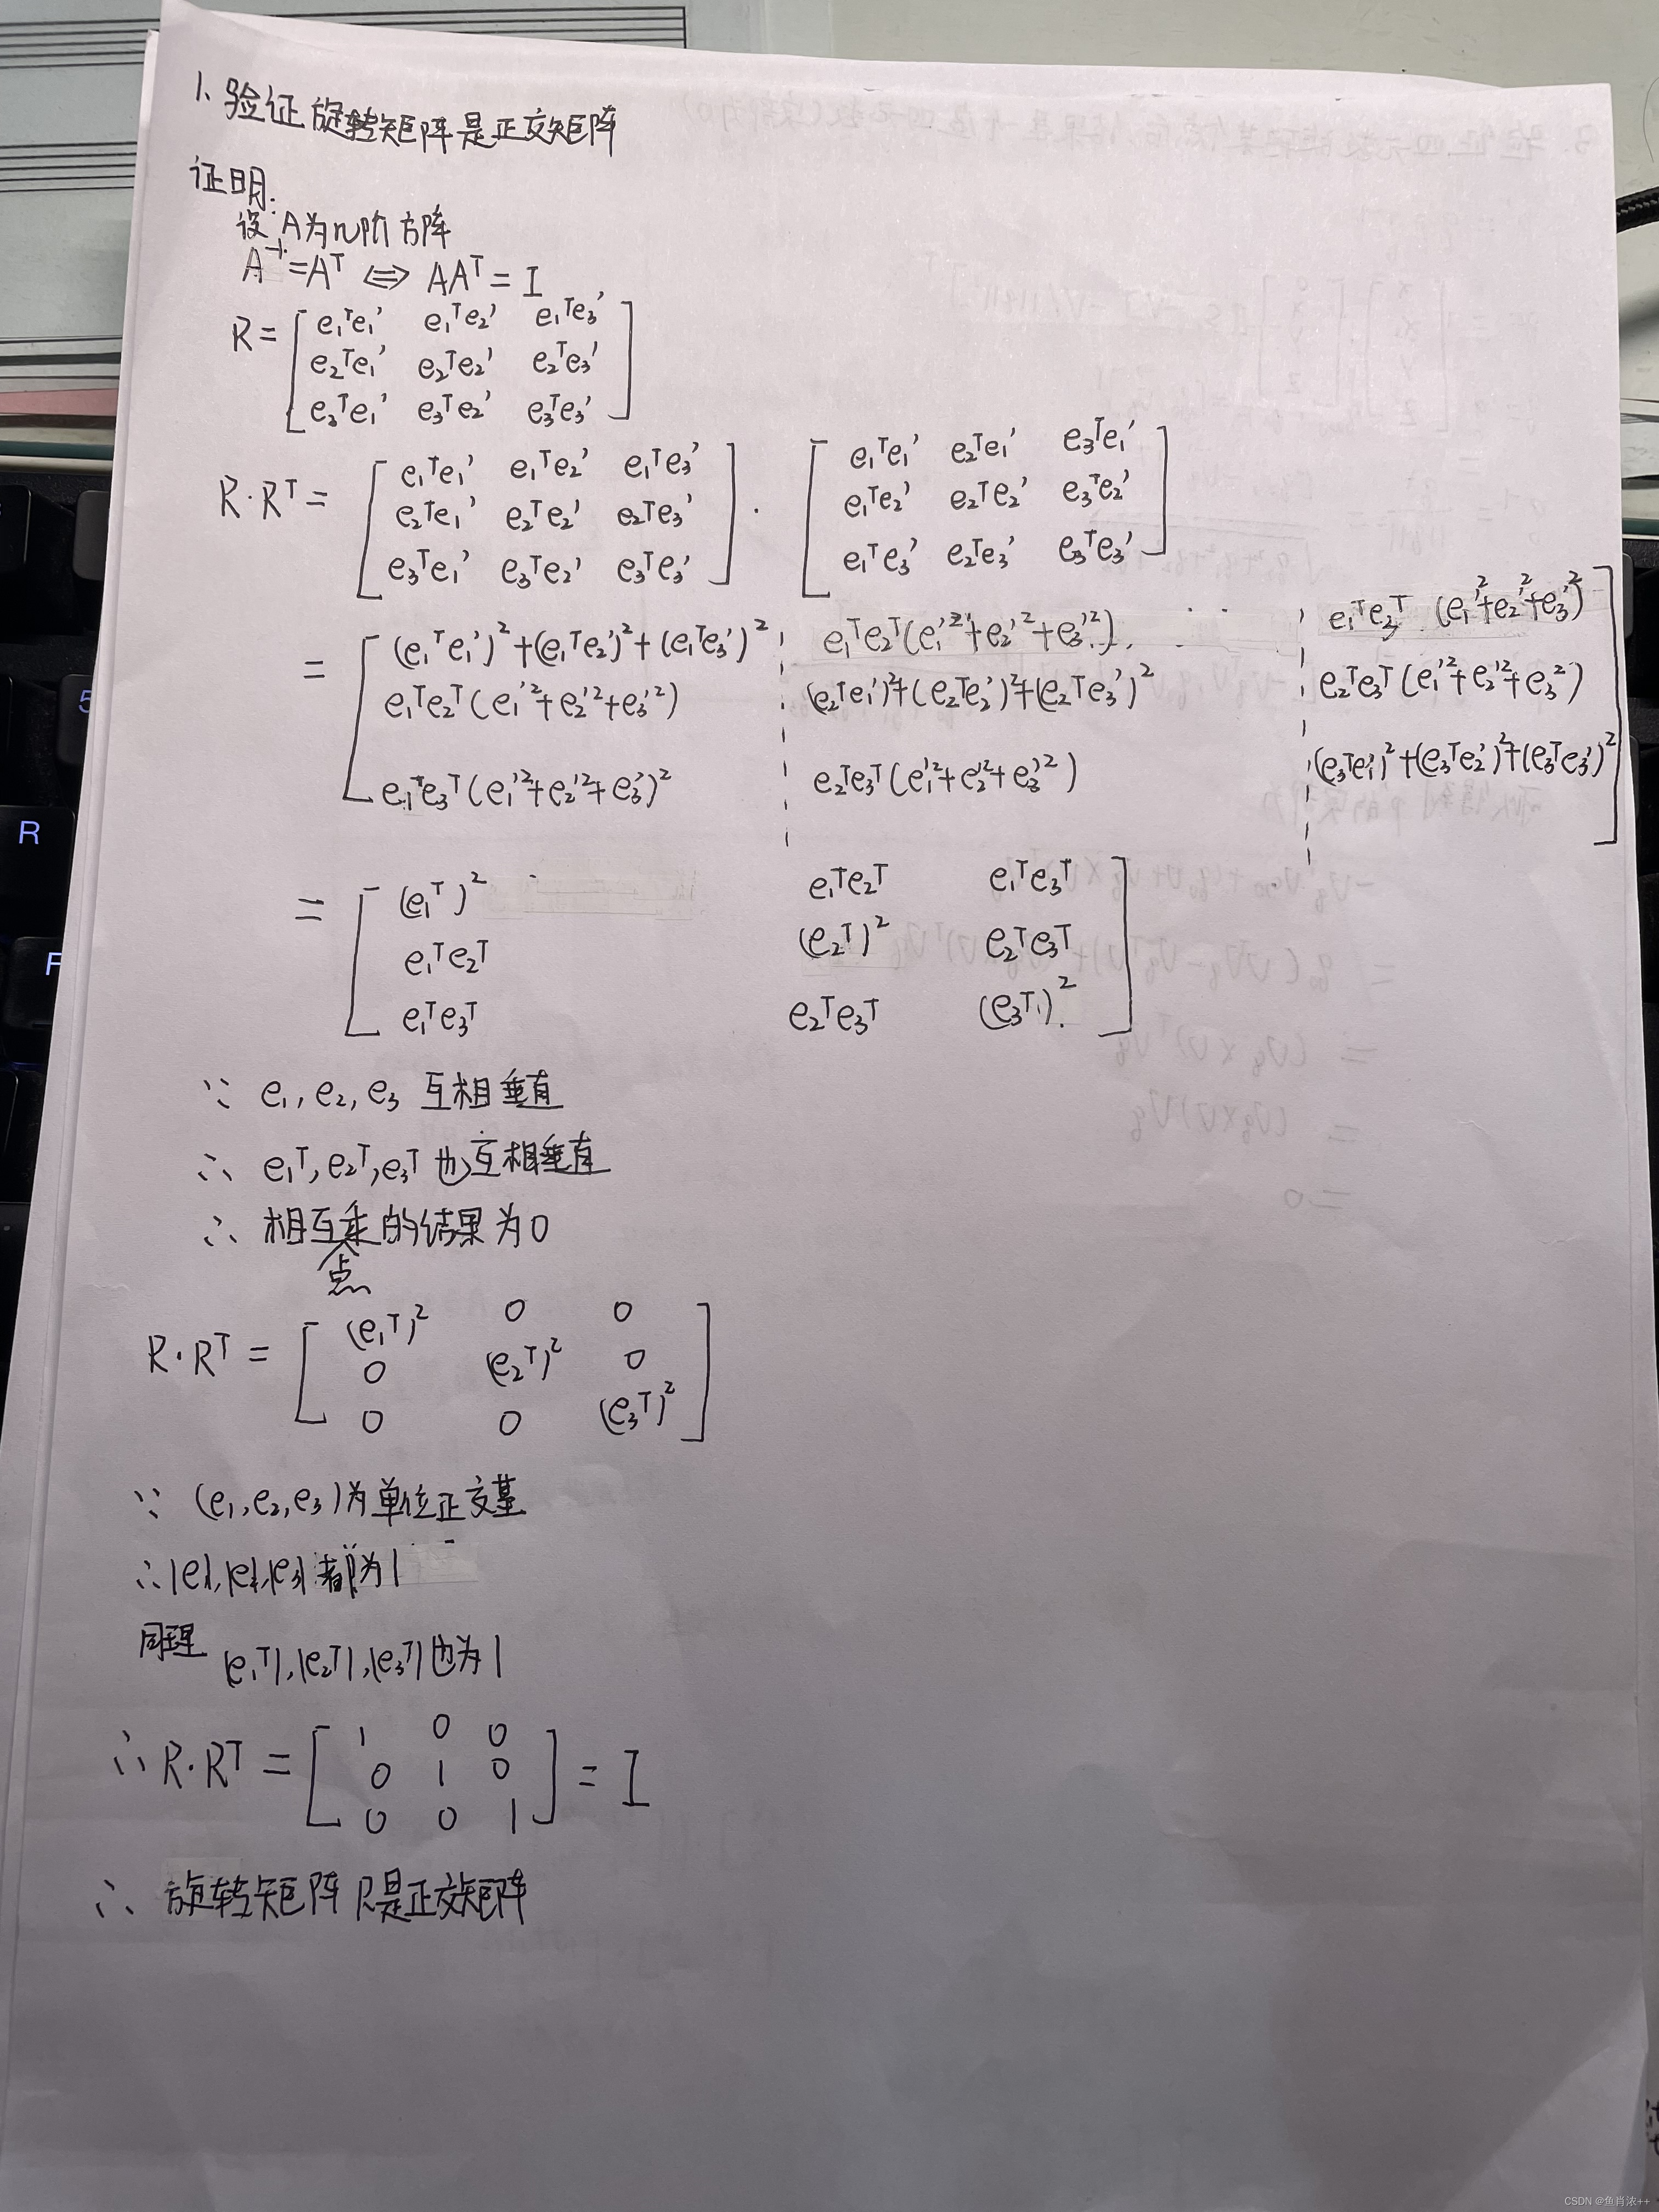 1、验证旋转矩阵是正交矩阵
证明:
设A为n阶方阵
A⁻¹=Aᵀ ⇔ AAᵀ=I
R= [ e₁ᵀe₁' e₁ᵀe₂' e₁ᵀe₃'
e₂ᵀe₁' e₂ᵀe₂' e₂ᵀe₃'
e₃ᵀe₁' e₃ᵀe₂' e₃ᵀe₃' ]
R·Rᵀ= [ e₁ᵀe₁' e₁ᵀe₂' e₁ᵀe₃' ] · [ e₁ᵀe₁' e₂ᵀe₁' e₃ᵀe₁' ]
[ e₂ᵀe₁' e₂ᵀe₂' e₂ᵀe₃' ] [ e₁ᵀe₂' e₂ᵀe₂' e₃ᵀe₂' ]
[ e₃ᵀe₁' e₃ᵀe₂' e₃ᵀe₃' ] [ e₁ᵀe₃' e₂ᵀe₃' e₃ᵀe₃' ]
= [ (e₁ᵀe₁')²+(e₁ᵀe₂')²+(e₁ᵀe₃')² e₁ᵀe₂ᵀ(e₁'²+e₂'²+e₃'²) e₁ᵀe₂ᵀ(e₁'²+e₂'²+e₃'²)
e₁ᵀe₂ᵀ(e₁'²+e₂'²+e₃'²) (e₂ᵀe₁')²+(e₂ᵀe₂')²+(e₂ᵀe₃')² e₂ᵀe₃ᵀ(e₁'²+e₂'²+e₃'²)
e₁ᵀe₃ᵀ(e₁'²+e₂'²+e₃')² e₂ᵀe₃ᵀ(e₁'²+e₂'²+e₃'²) (e₃ᵀe₁')²+(e₃ᵀe₂')²+(e₃ᵀe₃')² ]
= [ (e₁ᵀ)² e₁ᵀe₂ᵀ e₁ᵀe₃ᵀ
e₁ᵀe₂ᵀ (e₂ᵀ)² e₂ᵀe₃ᵀ
e₁ᵀe₃ᵀ e₂ᵀe₃ᵀ (e₃ᵀ)² ]
∵ e₁,e₂,e₃ 互相垂直
∴ e₁ᵀ,e₂ᵀ,e₃ᵀ也互相垂直
∴ 相互点乘的结果为0
R·Rᵀ= [ (e₁ᵀ)² 0 0
0 (e₂ᵀ)² 0
0 0 (e₃ᵀ)² ]
∵ (e₁,e₂,e₃)为单位正交基
∴|e₁|,|e₂|,|e₃|都为1
同理 |e₁ᵀ|,|e₂ᵀ|,|e₃ᵀ|也为1
∴R·Rᵀ= [ 1 0 0
0 1 0
0 0 1 ] = I
∴ 旋转矩阵R是正交矩阵
R
F
5
CSDN @鱼肖浓++